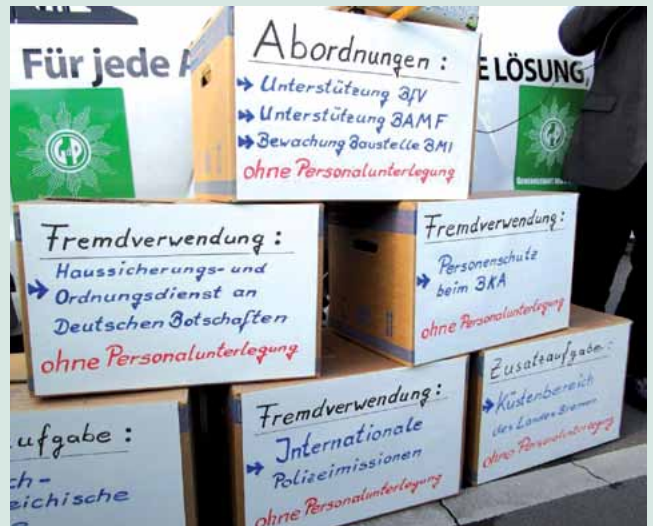 Für jede
E LÖSUNG,
GdP
Abordnungen :
Unterstützung BfV
Unterstützung BAMF
Bewachung Baustelle BMI
ohne Personalunterlegung
Fremdverwendung :
Haussicherungs- und
Ordnungsdienst an
Deutschen Botschaften
ohne Personalunterlegung
Fremdverwendung :
Personenschutz
beim BKA
ohne Personalunterlegung
ufgabe :
ch-
eichische
Fremdverwendung :
Internationale
Polizeimissionen
ohne Personalunterlegung
Zusatzaufgabe :
Küstenbereich
des Landes Bremen
ohne Personalunterlegung